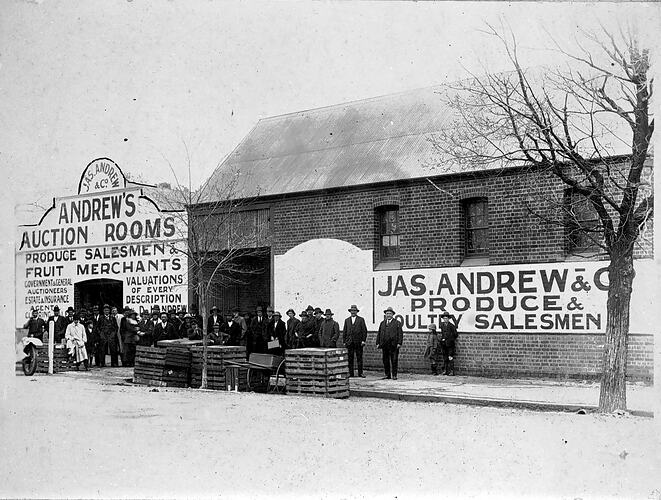 JAS. ANDREW
& Co
ANDREW'S
AUCTION ROOMS
PRODUCE SALESMEN &
FRUIT MERCHANTS
GOVERNMENT & GENERAL
AUCTIONEERS
ESTATE & INSURANCE
VALUATIONS
OF EVERY
DESCRIPTION
JAS. ANDREW & Co
PRODUCE &
POULTRY SALESMEN